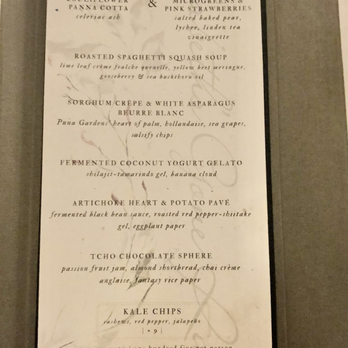 PANNA COTTA
celeriac ash
&
MICROGREENS &
PINK STRAWBERRIES
salted baked pear,
lychee, linden tea
vinaigrette
ROASTED SPAGHETTI SQUASH SOUP
lime leaf crème fraîche quenelle, yellow beet meringue,
gooseberry & sea buckthorn oil
SORGHUM CRÊPE & WHITE ASPARAGUS
BEURRE BLANC
Puna Gardens' heart of palm, hollandaise, sea grapes,
salsify chips
FERMENTED COCONUT YOGURT GELATO
shilajit-tamarindo gel, banana cloud
ARTICHOKE HEART & POTATO PAVÉ
fermented black bean sauce, roasted red pepper-shiitake
gel, eggplant paper
TCHO CHOCOLATE SPHERE
passion fruit jam, almond shortbread, chai crème
anglaise, fantasy rice paper
KALE CHIPS
cashews, red pepper, jalapeño
| • 9 |